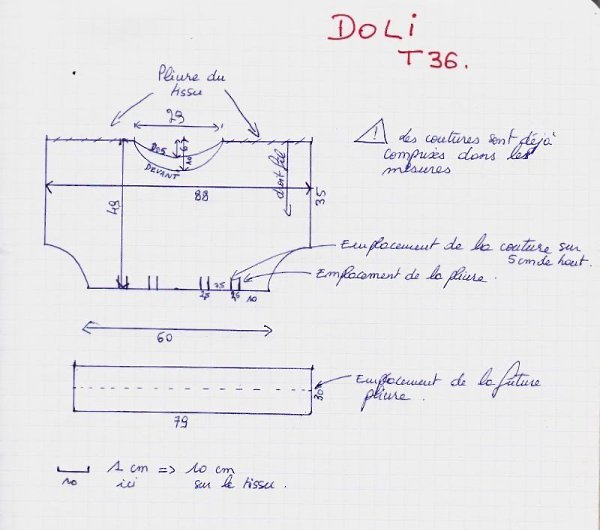 DOLI
T36.
Pliure du
tissu
29
Les coutures sont déjà
comprises dans les
mesures
DOS
6
10
DEVANT
droit fil
49
88
35
Emplacement de la couture sur
5cm de haut.
Emplacement de la pliure.
10
60
Emplacement de la future
pliure.
30
79
1 cm => 10 cm
10
ici
sur le tissu.